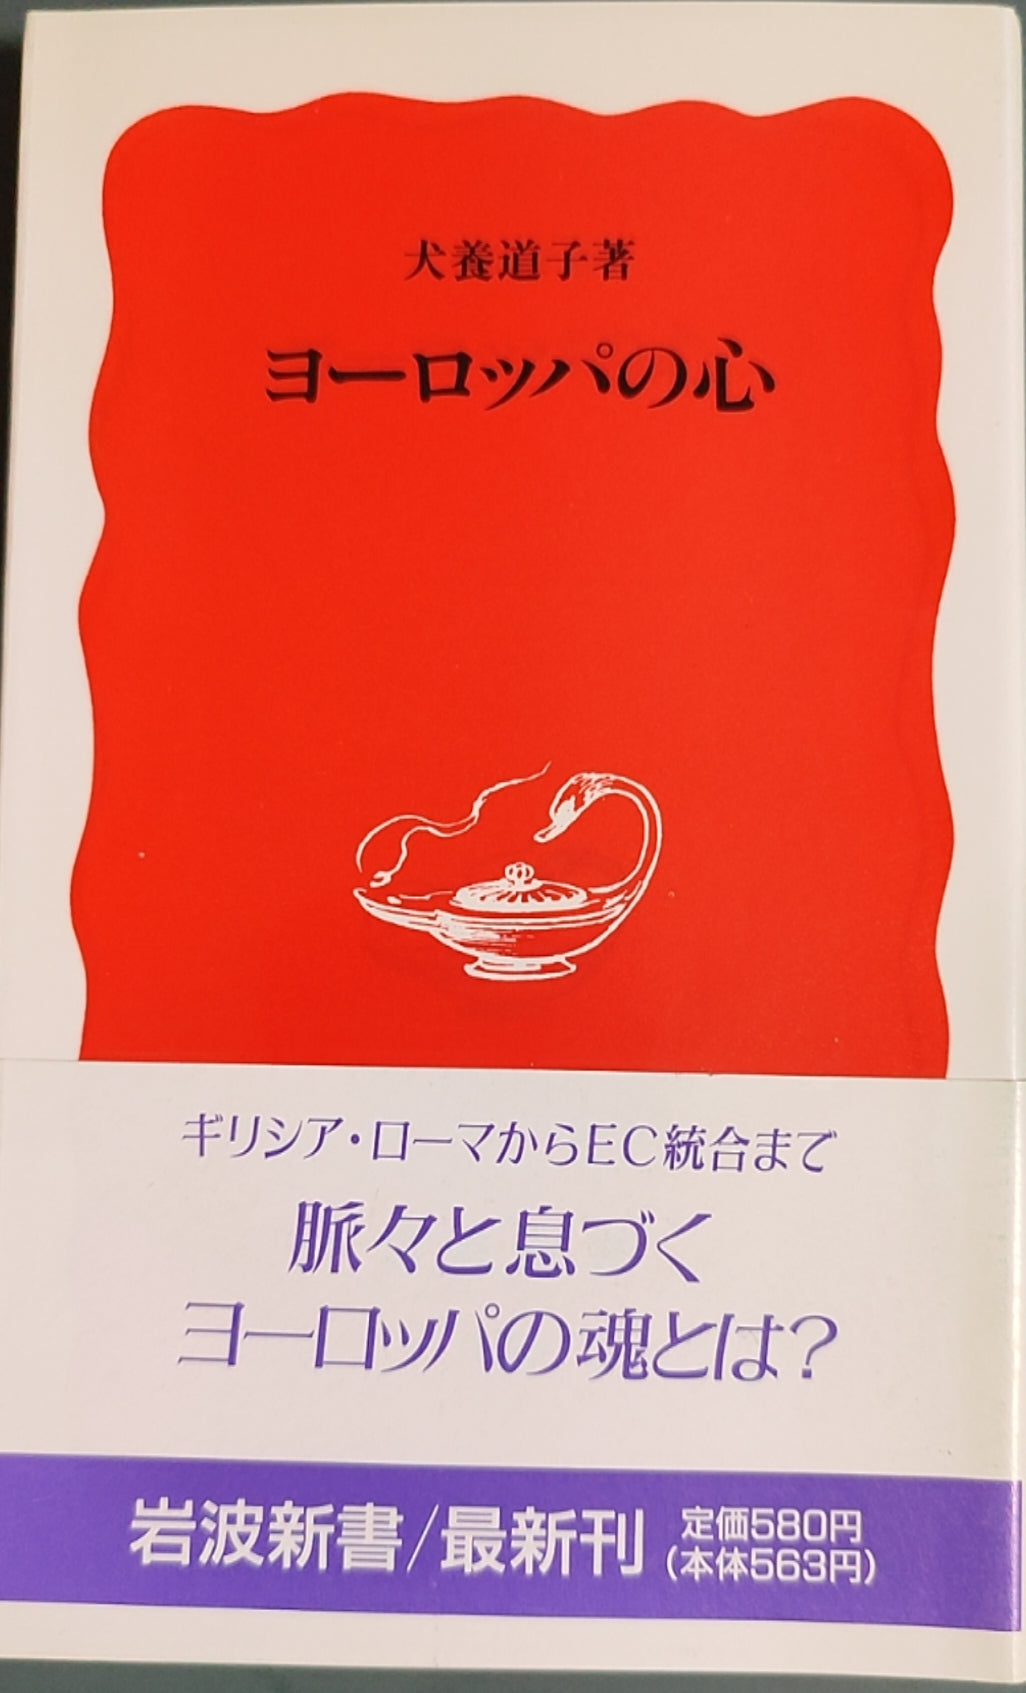 犬養道子著
ヨーロッパの心
ギリシア・ローマからEC統合まで
脈々と息づく
ヨーロッパの魂とは?
岩波新書/最新刊
定価580円
(本体563円)